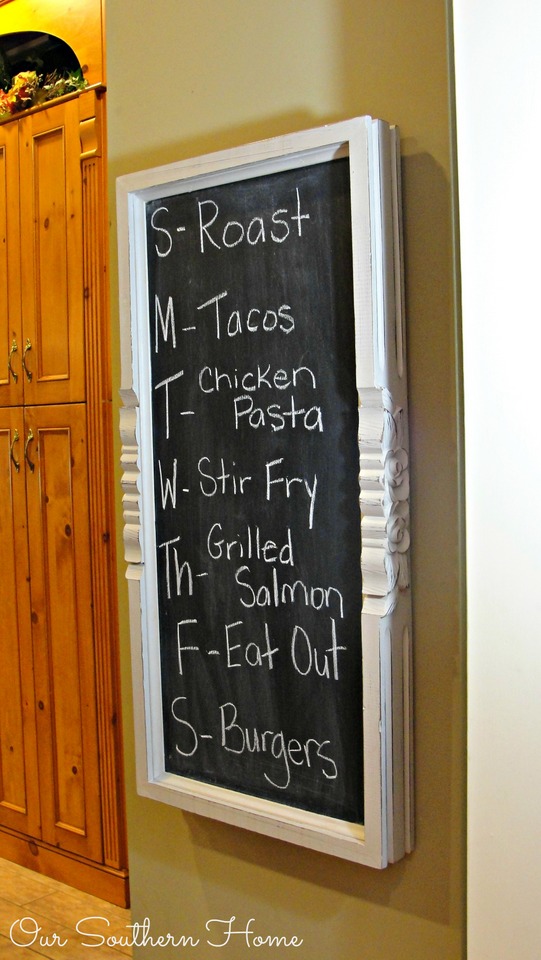 S-Roast
M-Tacos
T-Chicken
Pasta
W-Stir Fry
Th-Grilled
Salmon
F-Eat Out
S-Burgers
Our Southern Home